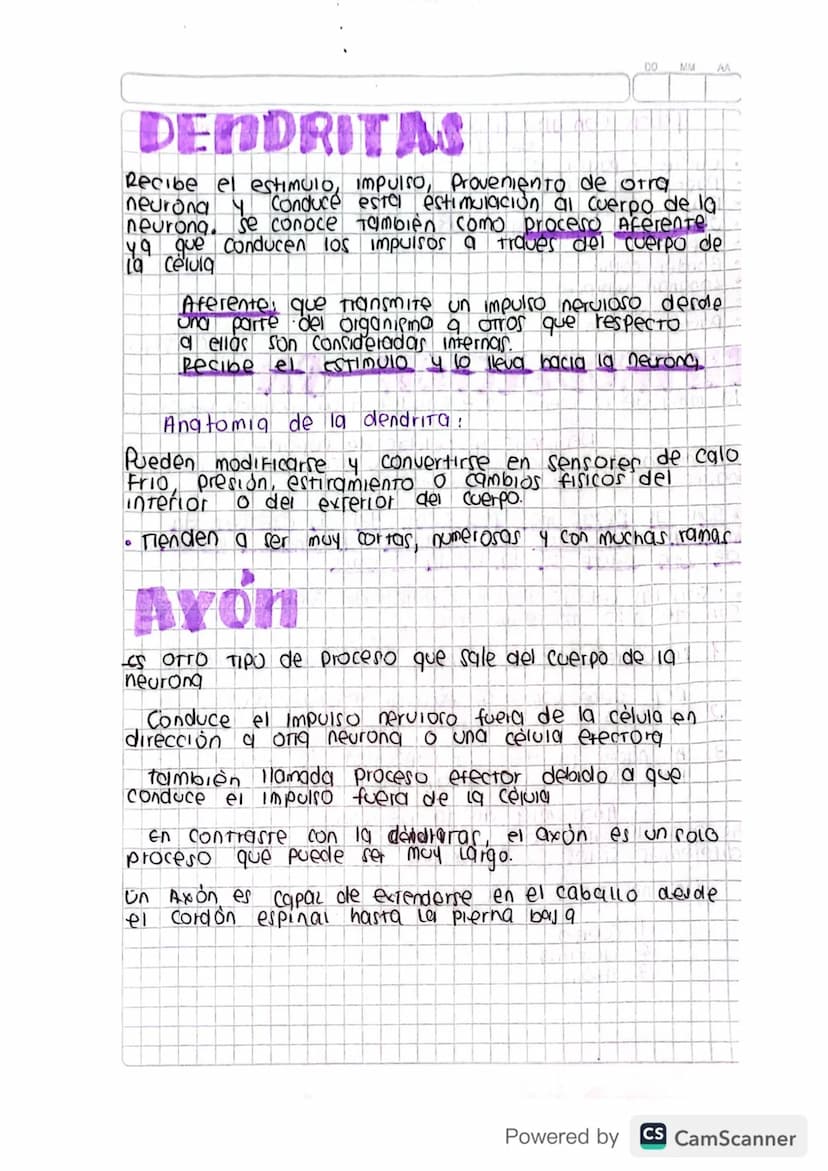 DD MM AA
DENDRITAS
Recibe el estimulo, impulso, Proveniento de otra
neurona y conduce esta estimulación al cuerpo de la
neurona. se conoce también como proceso Aferente
ya que conducen los impulsos a traves del cuerpo de
la célula
Aferente: que transmite un impulso nervioso desde
una parte del organismo a otros que respecto
a ellas son consideradas internas.
Recibe el ESTIMULO y lo lleva hacia la neurona.
Anatomia de la dendrita:
Pueden modificarse y convertirse en sensores de calo
Frio, presión, estiramiento o cambios fisicos del
interior o del exterior del cuerpo.
• Tienden a ser muy cortas, numerosas y con muchas ramas
Axón
es otro tipo de proceso que sale del cuerpo de la
neurona
Conduce el impulso nervioso fuera de la cèlula en
dirección a otra neurona o una célula efectora
También llamada proceso efector debido a que
conduce el impulso fuera de la célula
En contraste con la, el axón es un solo
proceso que puede ser muy largo.
Un Axón es capaz de extenderse en el caballo desde
el cordón espinal hasta la pierna baja
Powered by CS CamScanner